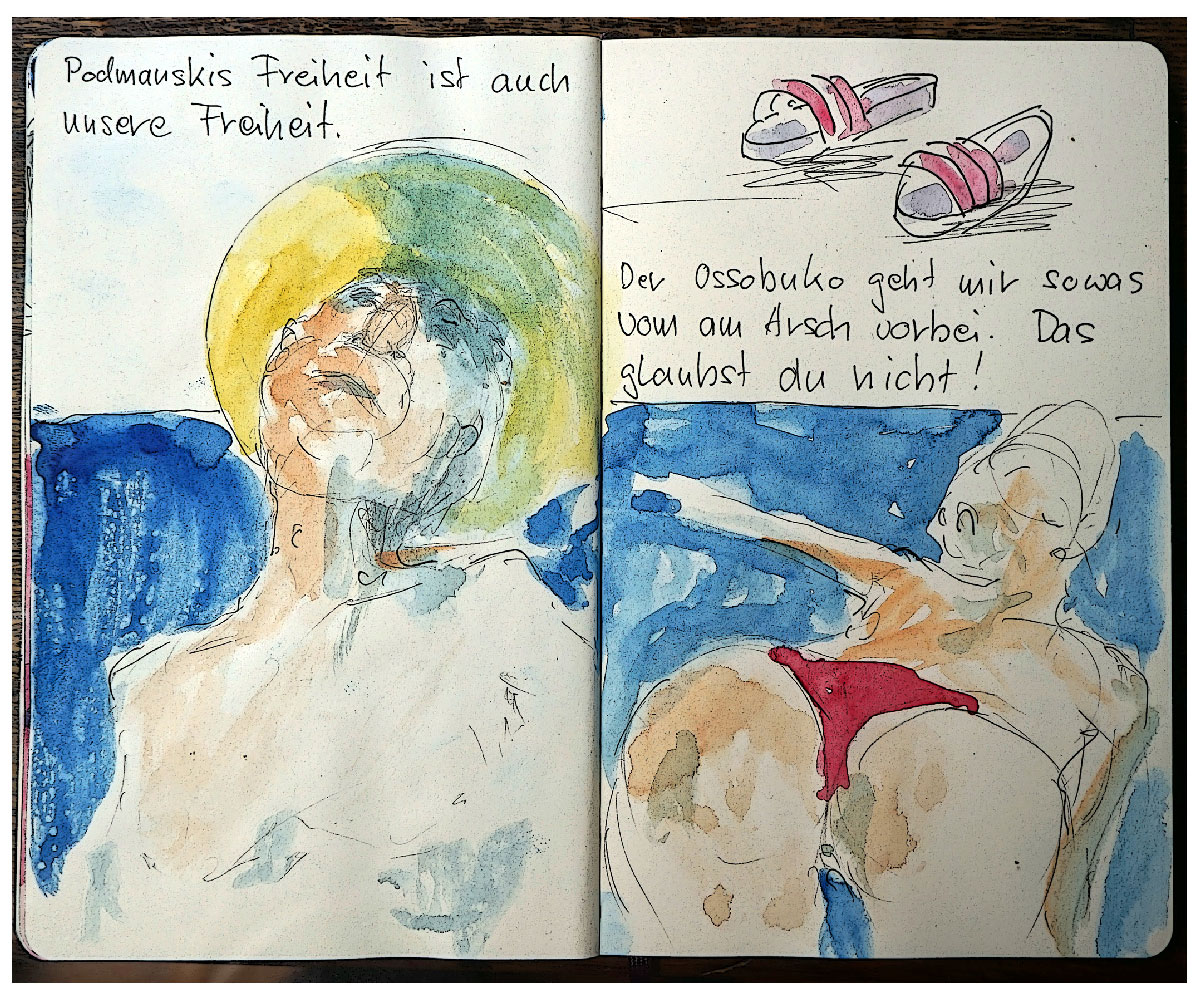 Podmanskis Freiheit ist auch
unsere Freiheit.
Der Ossobuko geht mir sowas
vom am Arsch vorbei. Das
glaubst du nicht!